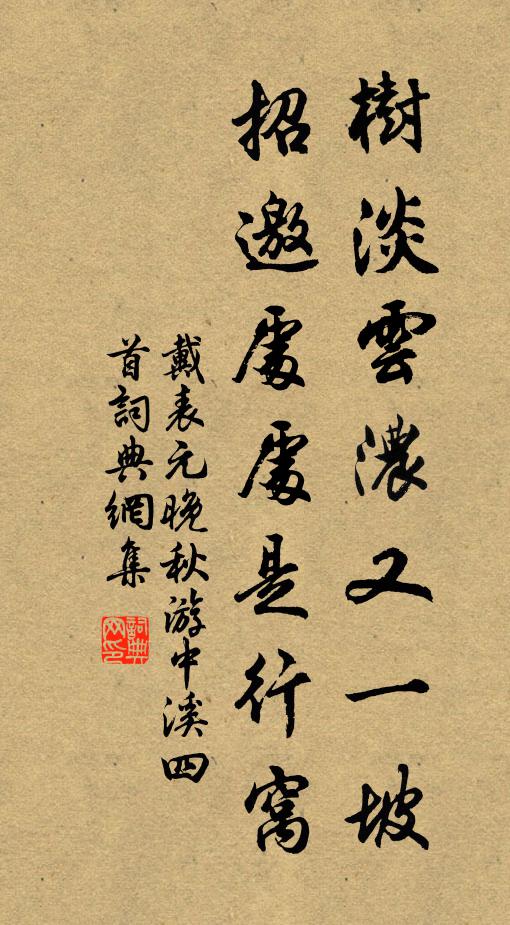 樹淡雲濃又一坡
招邀處處是行窩
戴表元晚秋游中溪四
首詞典網集
詞典
网印